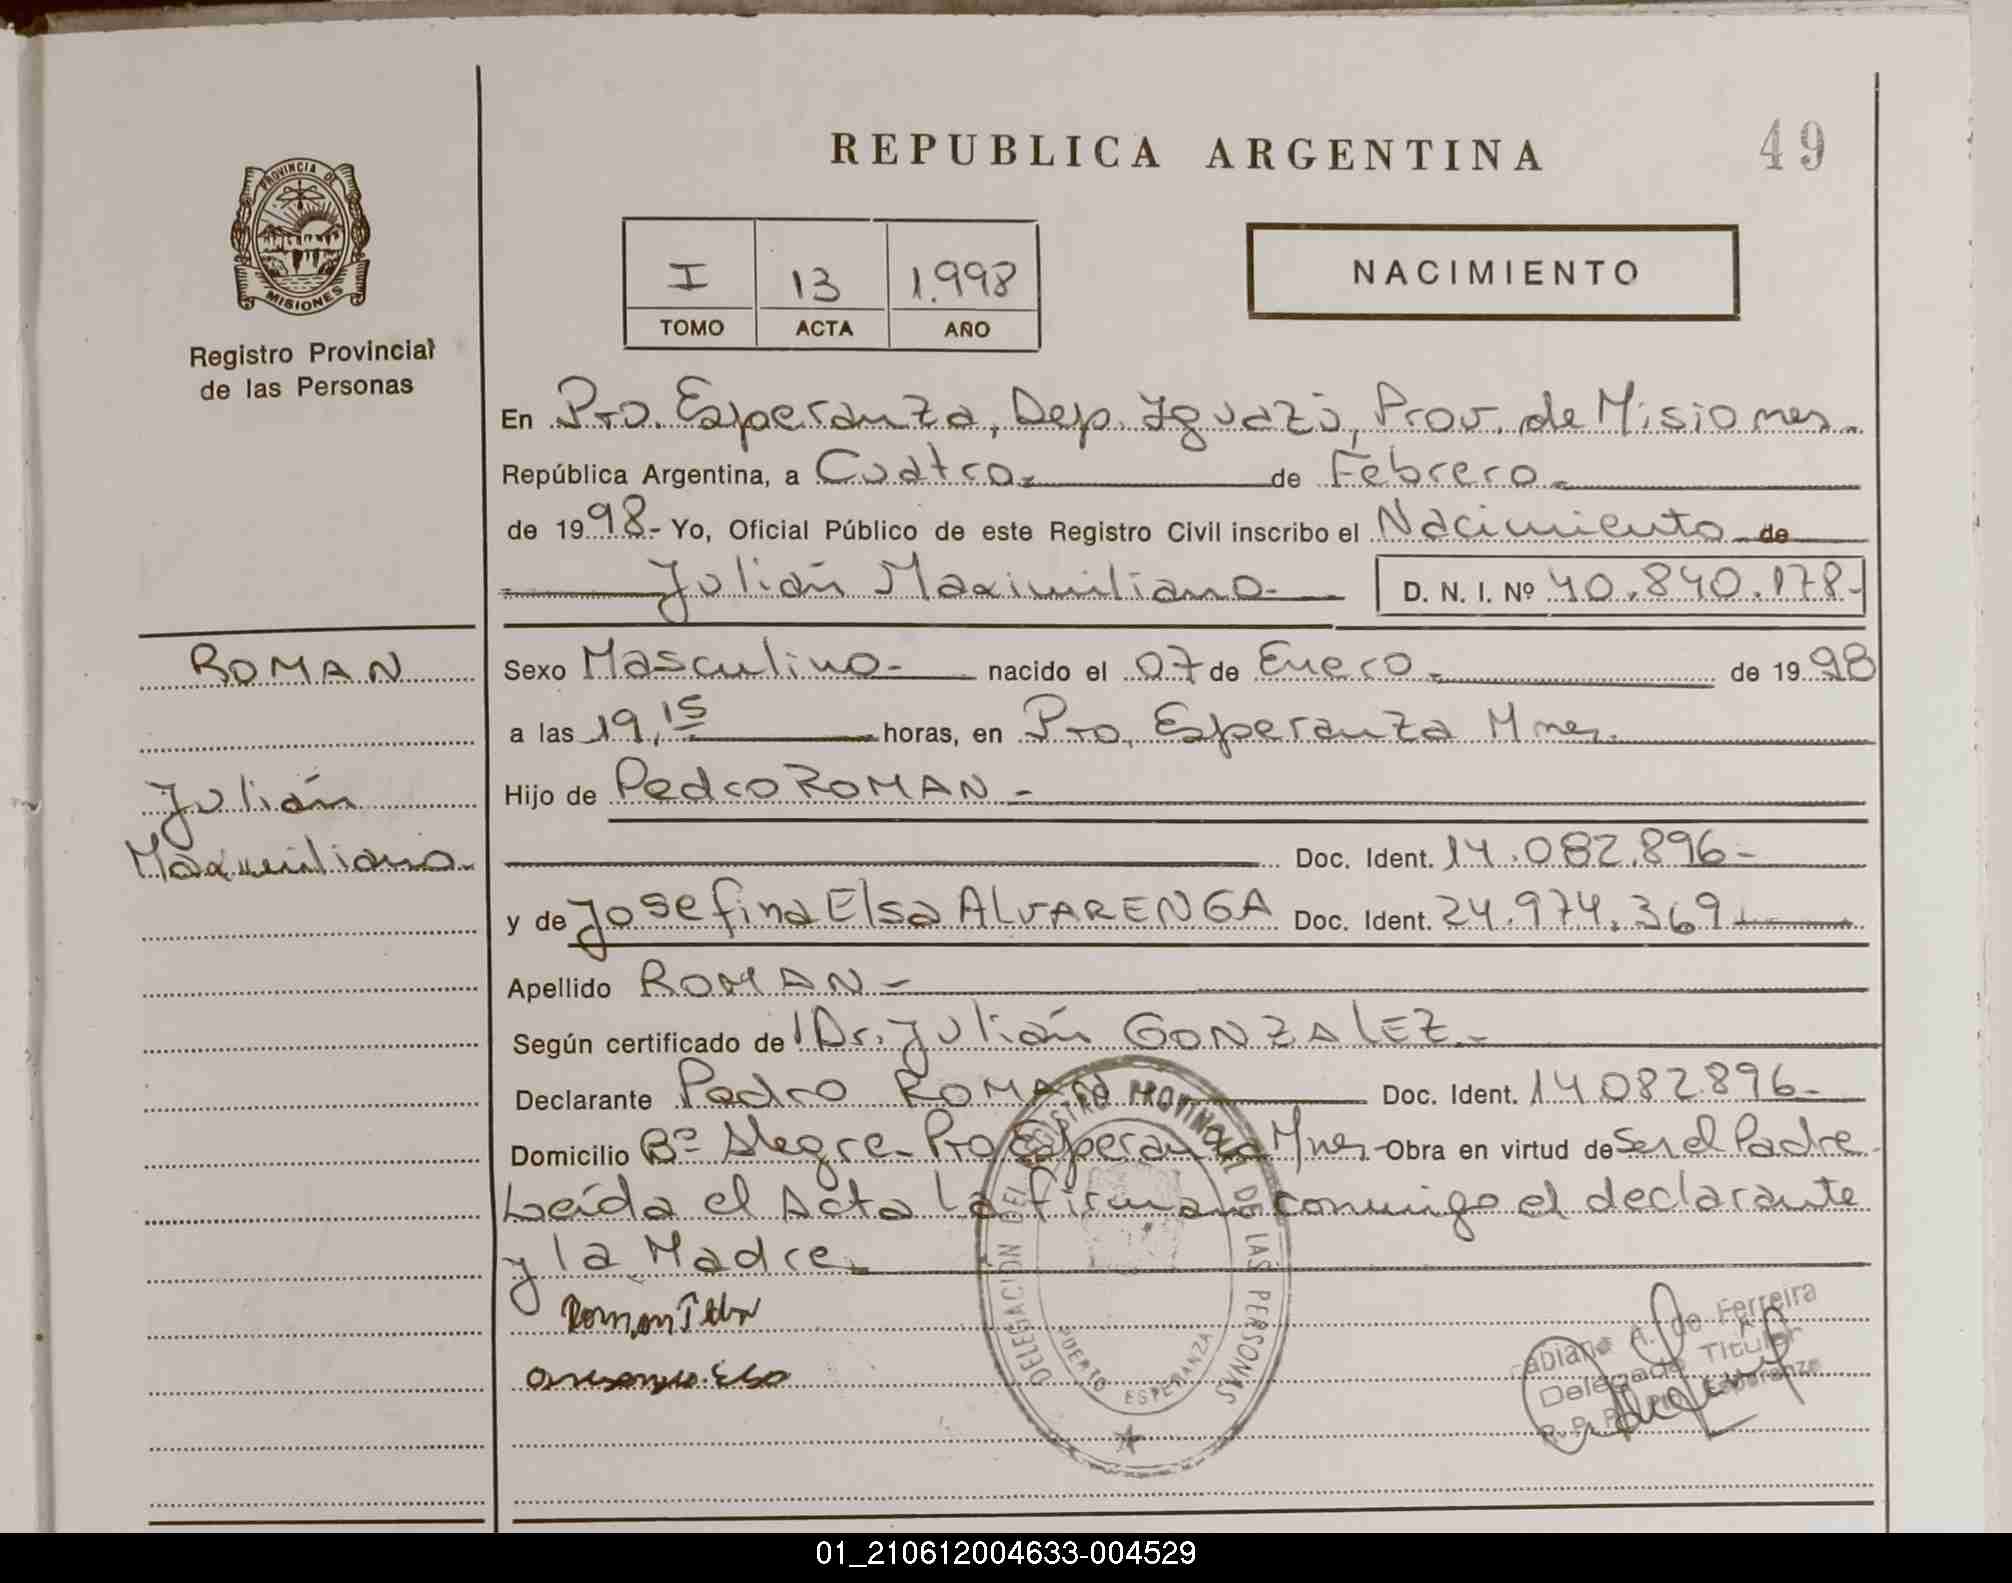 REPUBLICA ARGENTINA
49
PROVINCIA DE
MISIONES
Registro Provincial
de las Personas
I 13 1.998
TOMO ACTA AÑO
NACIMIENTO
En Pto. Esperanza, Dep. Iguazú, Prov. de Misiones.
República Argentina, a Cuatro.- de Febrero.-
de 1998- Yo, Oficial Público de este Registro Civil inscribo el Nacimiento de
Julián Maximiliano- D. N. I. Nº 40.840.178-
ROMAN
Julián
Maximiliano-
Sexo Masculino- nacido el 07 de Enero.- de 1998
a las 19,15 horas, en Pto. Esperanza Mnes.
Hijo de Pedro ROMAN-
Doc. Ident. 14.082.896-
y de Josefina Elsa ALVARENGA Doc. Ident. 24.974.369.-
Apellido ROMAN-
Según certificado de Dr. Julián GONZALEZ.-
Declarante Pedro ROMAN Doc. Ident. 14082.896-
Domicilio Bº Alegre-Pto Esperanza Mnes- Obra en virtud de Ser el Padre-
Leída el Acta la firman conmigo el declarante
y la Madre.
Roman
DELEGACION DEL REGISTRO PROVINCIAL DE LAS PERSONAS
PUERTO ESPERANZA
Fabiana A. de Ferreira
Delegada Titular
R. P. P. Pto. Esperanza
01_210612004633-004529